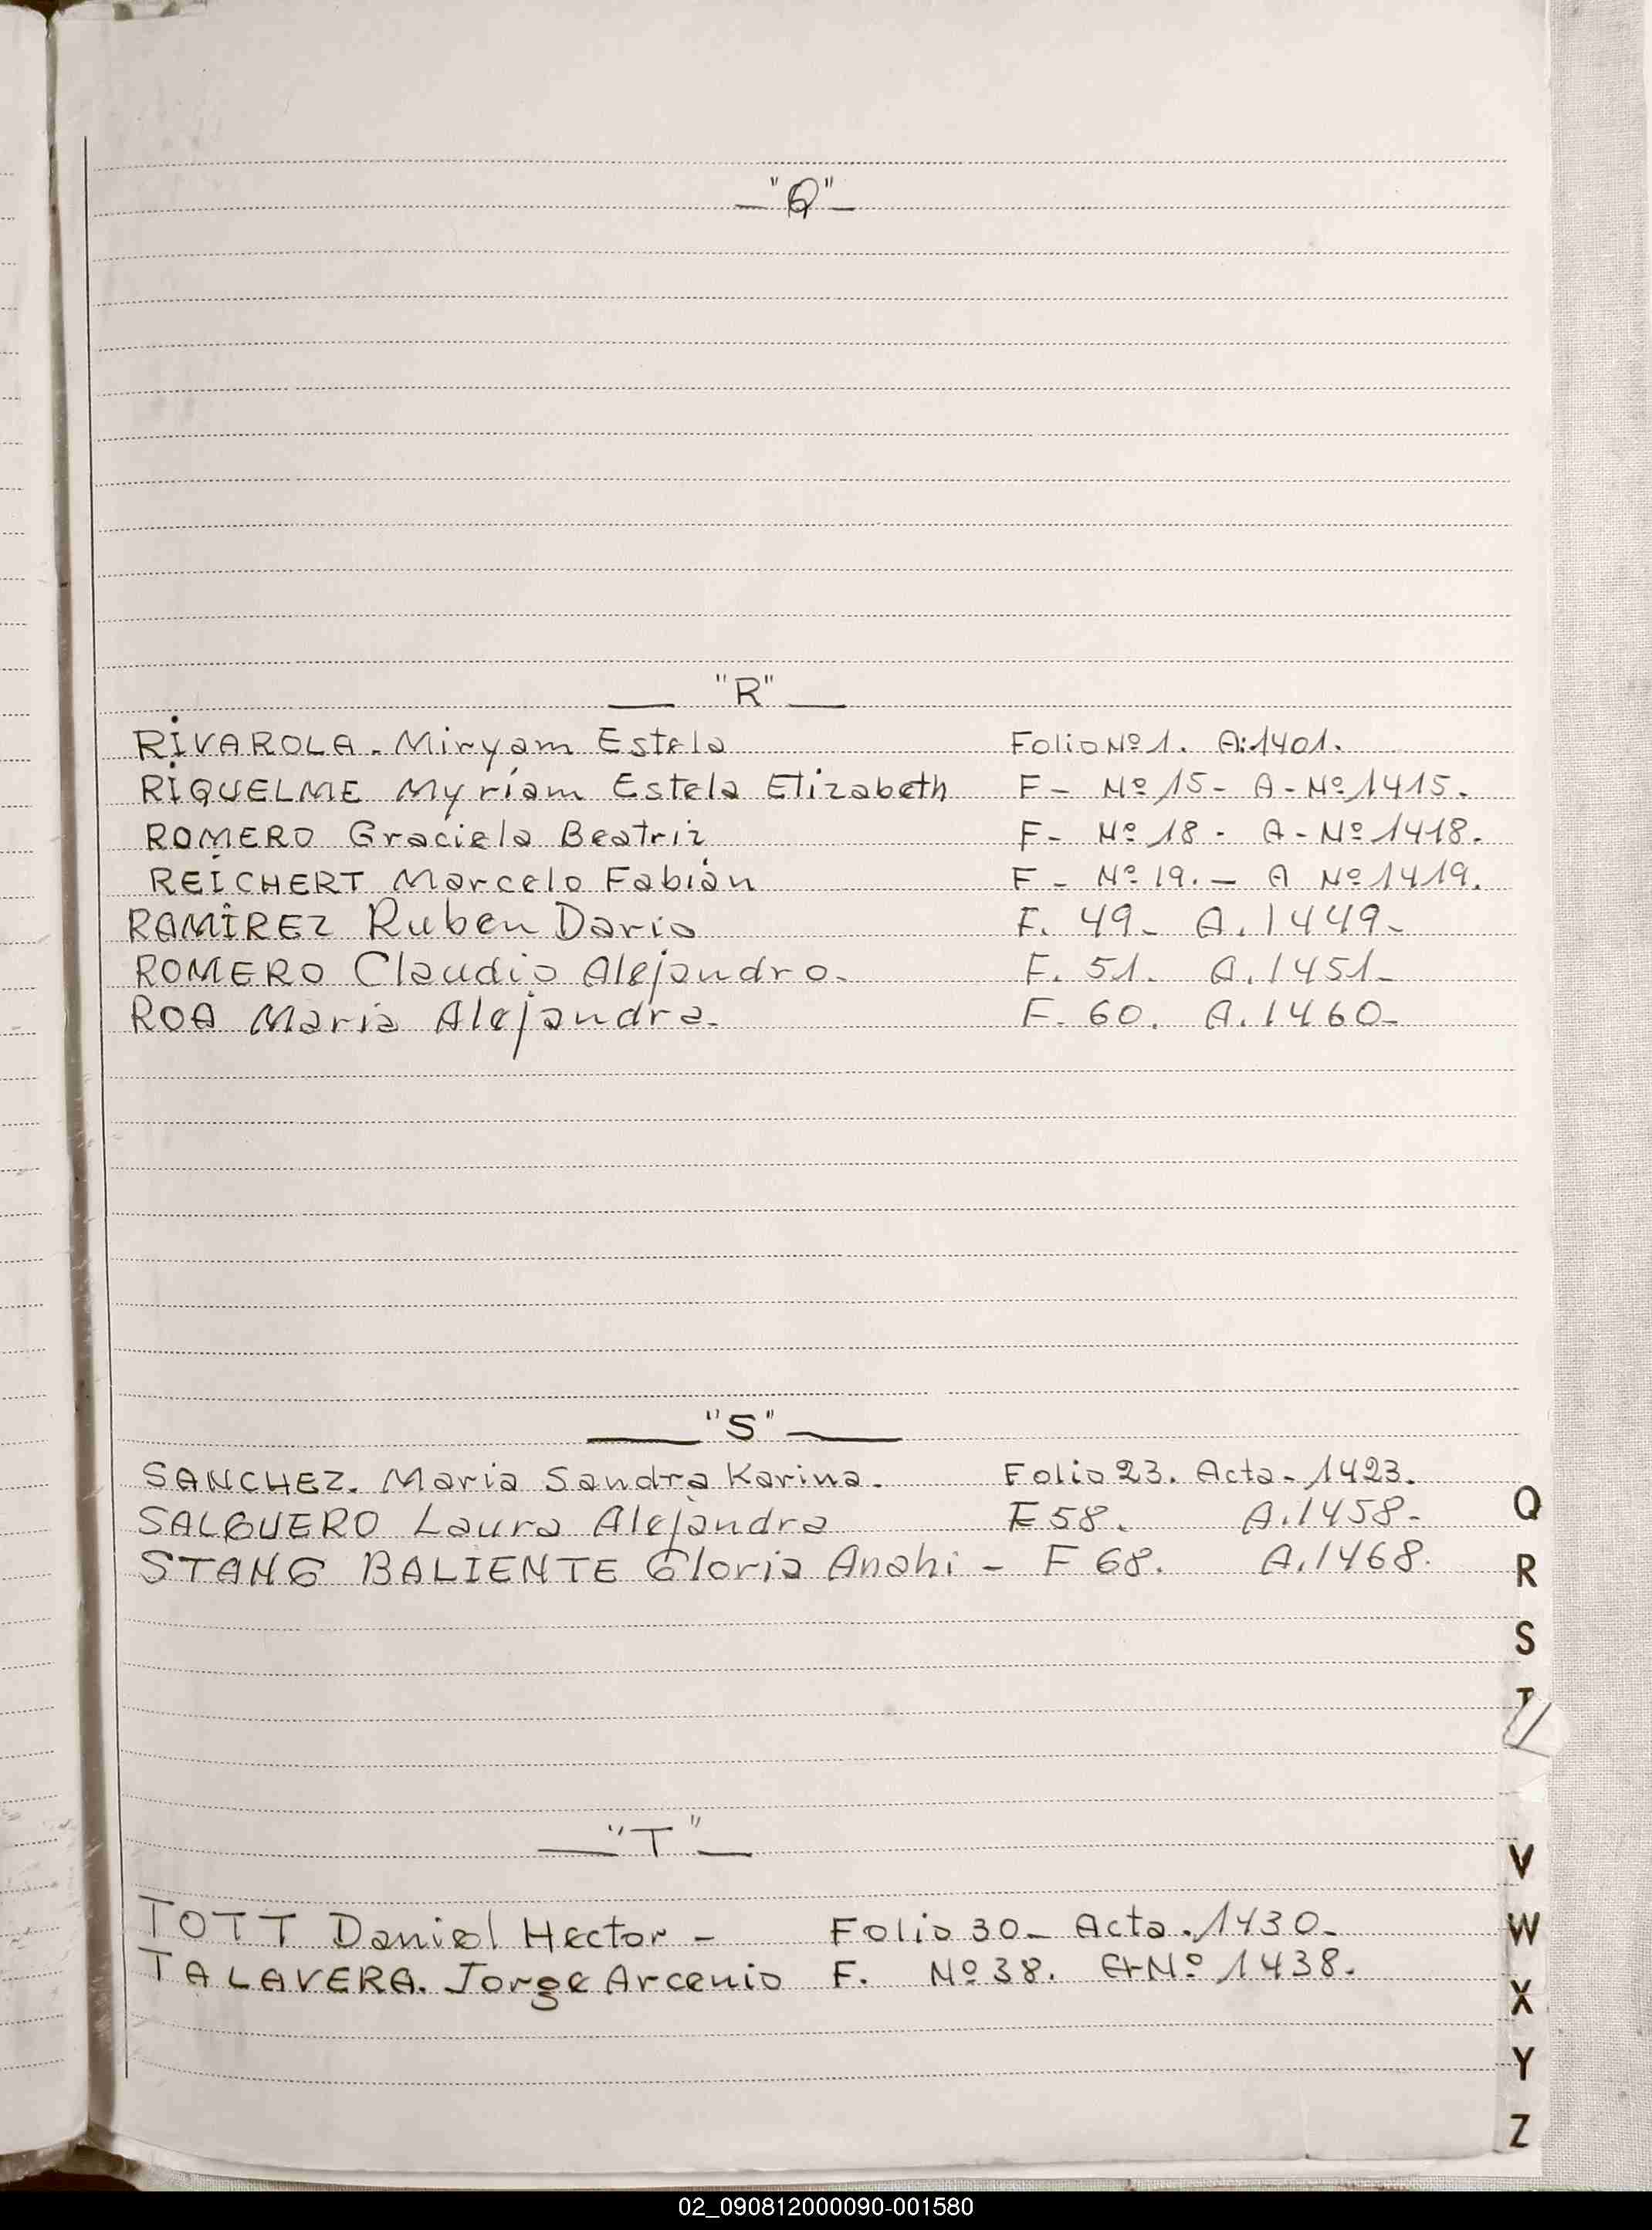 "Q"
"R"
RIVAROLA. Miryam Estela Folio Nº 1. A: 1401.
RIQUELME Myriam Estela Elizabeth F - Nº 15 - A - Nº 1415.
ROMERO Graciela Beatriz F - Nº 18 - A - Nº 1418.
REICHERT Marcelo Fabián F - Nº 19. - A Nº 1419.
RAMÍREZ Ruben Dario F. 49 - A. 1449 -
ROMERO Claudio Alejandro. F. 51. A. 1451 -
ROA Maria Alejandra. F. 60. A. 1460 -
"S"
SANCHEZ. Maria Sandra Karina. Folio 23. Acta - 1423.
SALGUERO Laura Alejandra F 58. A. 1458 -
STANG BALIENTE Gloria Anahi - F 68. A. 1468.
"T"
TOTT Daniel Hector - Folio 30 - Acta. 1430 -
TALAVERA. Jorge Arcenio F. Nº 38. A - Nº 1438.
Q
R
S
T
V
W
X
Y
Z
02_090812000090-001580